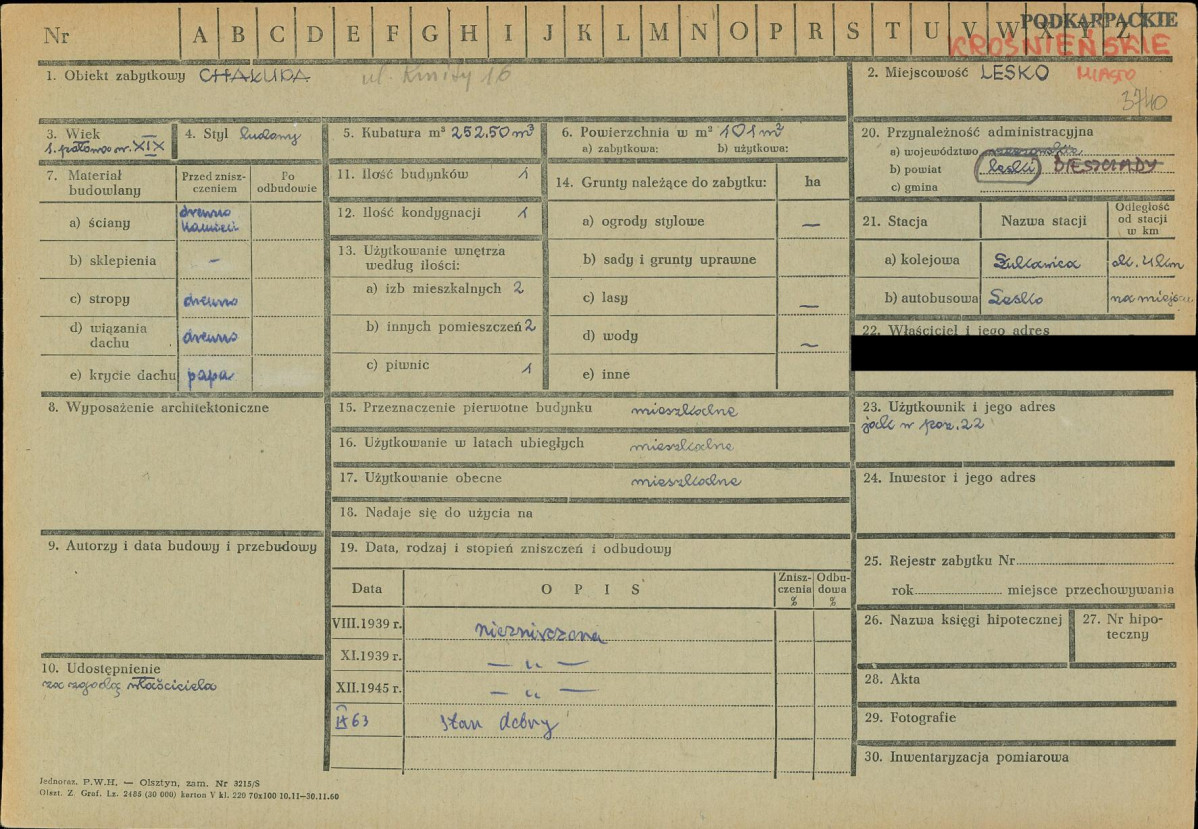 Nr A B C D E F G H I J K L M N O P R S T U V W X Y Z
PODKARPACKIE
KROŚNIEŃSKIE
1. Obiekt zabytkowy CHAŁUPA ul. Kmity 16
2. Miejscowość LESKO MIASTO
3740
3. Wiek
1. połowa w. XIX
4. Styl ludowy
5. Kubatura m³ 252,50 m³
6. Powierzchnia w m² 101 m²
a) zabytkowa: b) użytkowa:
7. Materiał budowlany
Przed znisz-
czeniem
Po
odbudowie
a) ściany drewno
kamień
b) sklepienia –
c) stropy drewno
d) wiązania
dachu drewno
e) krycie dachu papa
8. Wyposażenie architektoniczne
9. Autorzy i data budowy i przebudowy
10. Udostępnienie
za zgodą właściciela
11. Ilość budynków 1
12. Ilość kondygnacji 1
13. Użytkowanie wnętrza
według ilości:
a) izb mieszkalnych 2
b) innych pomieszczeń 2
c) piwnic 1
14. Grunty należące do zabytku: ha
a) ogrody stylowe —
b) sady i grunty uprawne
c) lasy —
d) wody —
e) inne
15. Przeznaczenie pierwotne budynku mieszkalne
16. Użytkowanie w latach ubiegłych mieszkalne
17. Użytkowanie obecne mieszkalne
18. Nadaje się do użycia na
19. Data, rodzaj i stopień zniszczeń i odbudowy
Data O P I S
Znisz-
czenia
%
Odbu-
dowa
%
VIII.1939 r. niezniszczona
XI.1939 r. — „ —
XII.1945 r. — „ —
IX 63 stan dobry
20. Przynależność administracyjna
a) województwo rzeszowskie
b) powiat leski BIESZCZADY
c) gmina
21. Stacja Nazwa stacji
Odległość
od stacji
w km
a) kolejowa Łukawica ok. 4 km
b) autobusowa Lesko na miejscu
22. Właściciel i jego adres
23. Użytkownik i jego adres
jak w poz. 22
24. Inwestor i jego adres
25. Rejestr zabytku Nr
rok miejsce przechowywania
26. Nazwa księgi hipotecznej
27. Nr hipo-
teczny
28. Akta
29. Fotografie
30. Inwentaryzacja pomiarowa
Jednoraz. P.W.H. — Olsztyn, zam. Nr 3215/S
Olszt. Z. Graf. Lz. 2485 (30 000) karton V kl. 220 70x100 10.11—30.11.60